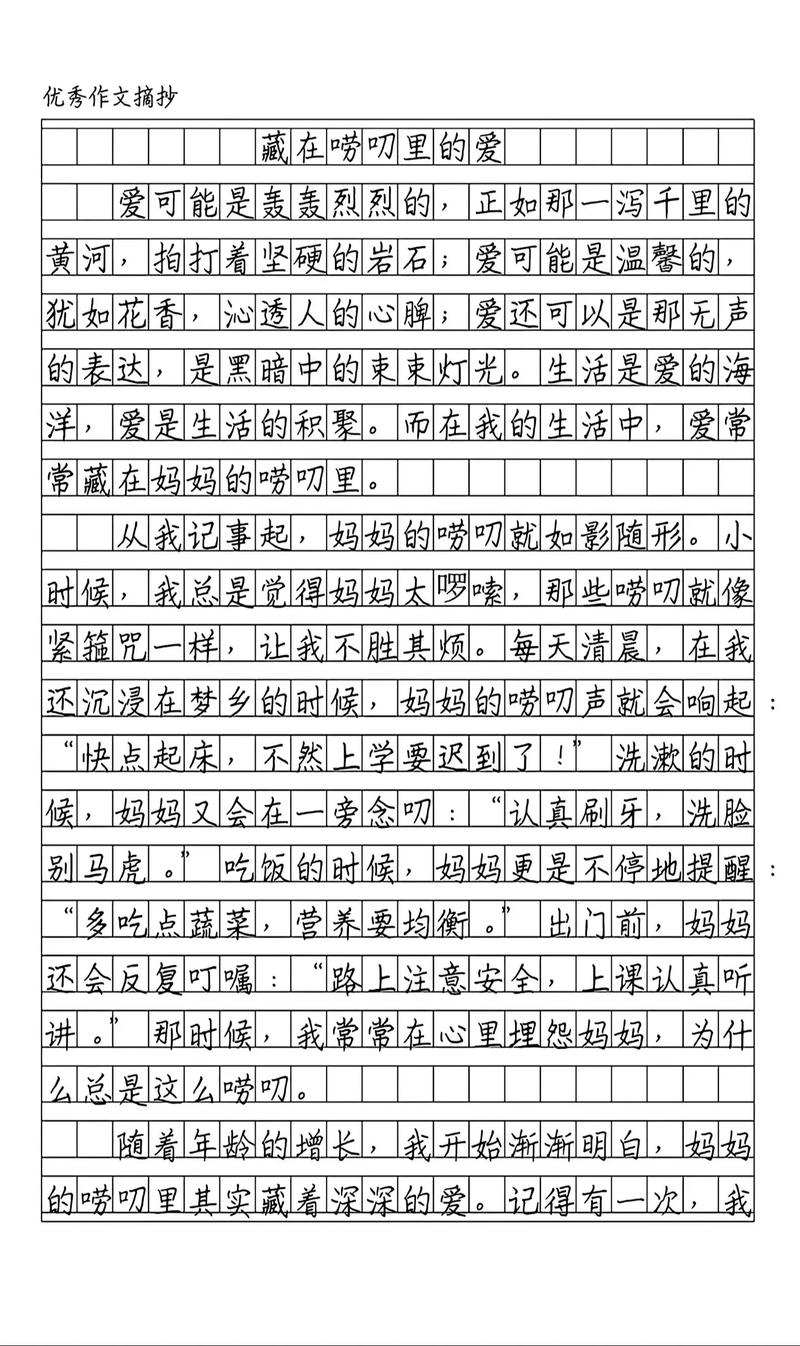 优秀作文摘抄
藏在唠叨里的爱
爱可能是轰轰烈烈的，正如那一泻千里的
黄河，拍打着坚硬的岩石；爱可能是温馨的，
犹如花香，沁透人的心脾；爱还可以是那无声
的表达，是黑暗中的束束灯光。生活是爱的海
洋，爱是生活的积聚。而在我的生活中，爱常
常藏在妈妈的唠叨里。
从我记事起，妈妈的唠叨就如影随形。小
时候，我总是觉得妈妈太啰嗦，那些唠叨就像
紧箍咒一样，让我不胜其烦。每天清晨，在我
还沉浸在梦乡的时候，妈妈的唠叨声就会响起：
“快点起床，不然上学要迟到了！”洗漱的时
候，妈妈又会在一旁念叨：“认真刷牙，洗脸
别马虎。”吃饭的时候，妈妈更是不停地提醒：
“多吃点蔬菜，营养要均衡。”出门前，妈妈
还会反复叮嘱：“路上注意安全，上课认真听
讲。”那时候，我常常在心里埋怨妈妈，为什
么总是这么唠叨。
随着年龄的增长，我开始渐渐明白，妈妈
的唠叨里其实藏着深深的爱。记得有一次，我